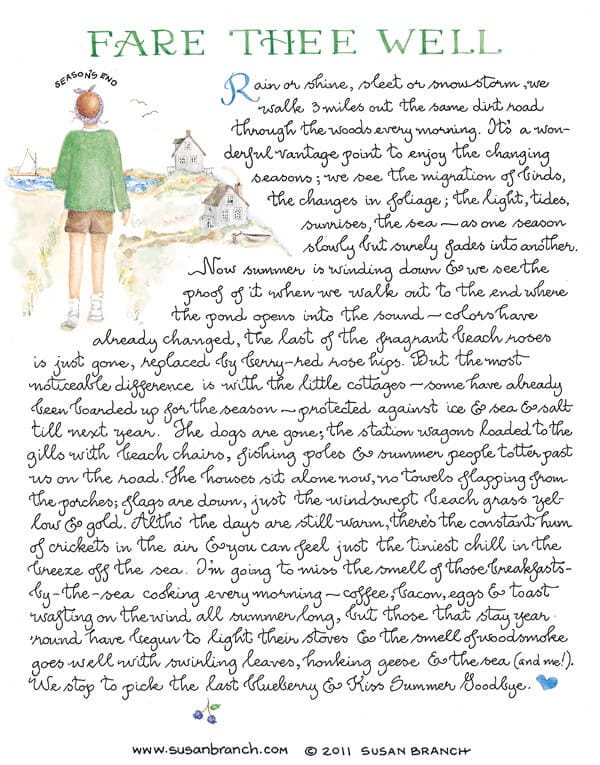 FARE THEE WELL
SEASON'S END
Rain or shine, sleet or snowstorm, we
walk 3 miles out the same dirt road
through the woods every morning. It's a won-
derful vantage point to enjoy the changing
seasons; we see the migration of birds,
the changes in foliage; the light, tides,
sunrises, the sea — as one season
slowly but surely fades into another.
Now summer is winding down & we see the
proof of it when we walk out to the end where
the pond opens into the sound — colors have
already changed, the last of the fragrant beach roses
is just gone, replaced by berry-red rose hips. But the most
noticeable difference is with the little cottages — some have already
been boarded up for the season — protected against ice & sea & salt
till next year. The dogs are gone; the station wagons loaded to the
gills with beach chairs, fishing poles & summer people totter past
us on the road. The houses sit alone now, no towels flapping from
the porches; flags are down, just the windswept beach grass yel-
low & gold. Altho' the days are still warm, there's the constant hum
of crickets in the air & you can feel just the tiniest chill in the
breeze off the sea. I'm going to miss the smell of those breakfasts-
by-the-sea cooking every morning — coffee, bacon, eggs & toast
wafting on the wind all summer long, but those that stay year
'round have begun to light their stoves & the smell of woodsmoke
goes well with swirling leaves, honking geese & the sea (and me!).
We stop to pick the last blueberry & Kiss Summer Goodbye.
www.susanbranch.com © 2011 SUSAN BRANCH